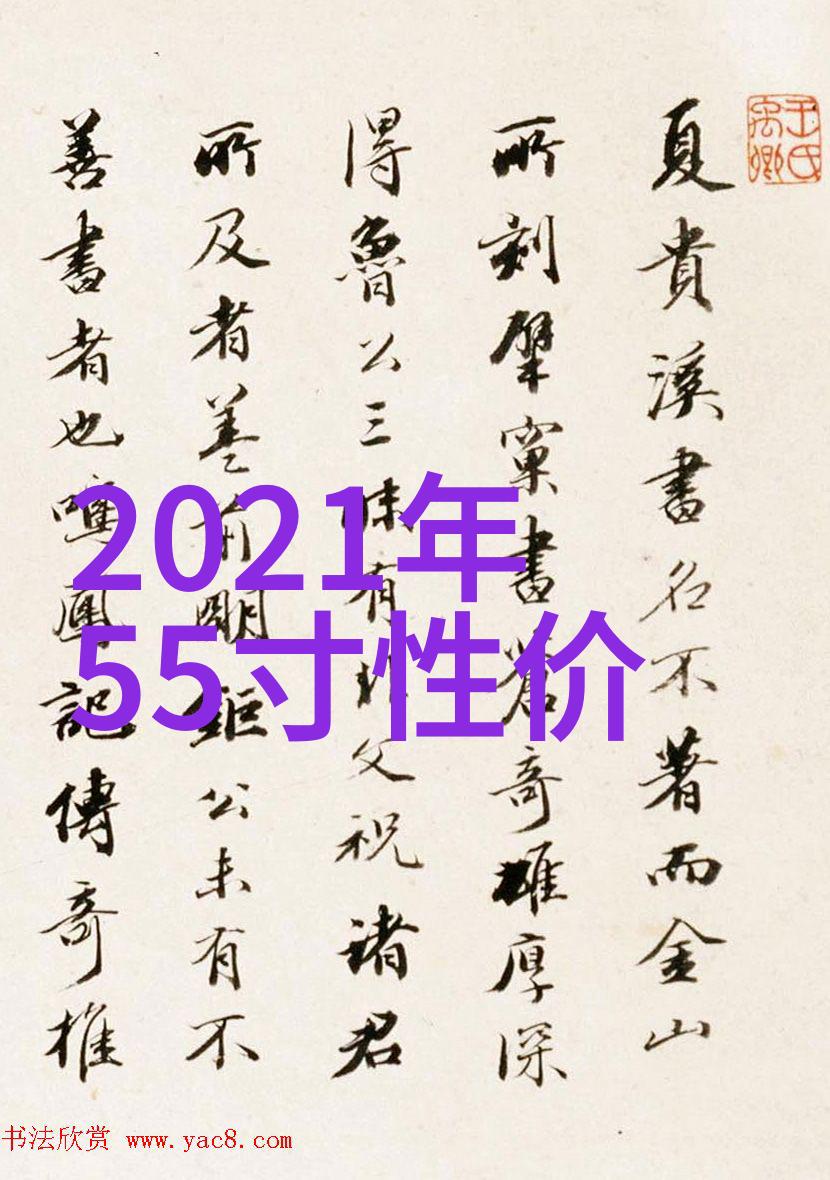 王氏禹卿
夏貴溪書名不著而金山
所刻擘窠書蒼奇雄厚深
得魯公三昧有非文祝諸君
所及者蓋前明鉅公未有不
善書者也鳴鳳記傳奇推
2021年
55寸性价
书法欣赏 www.yac8.com